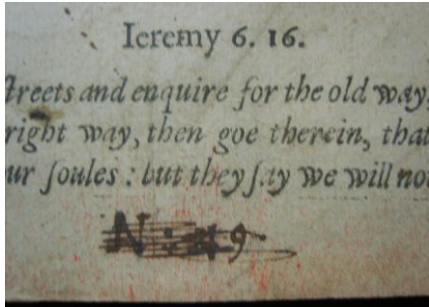 Ieremy 6. 16.
ſtreets and enquire for the old way,
right way, then goe therein, that
ur ſoules : but they ſay we will not